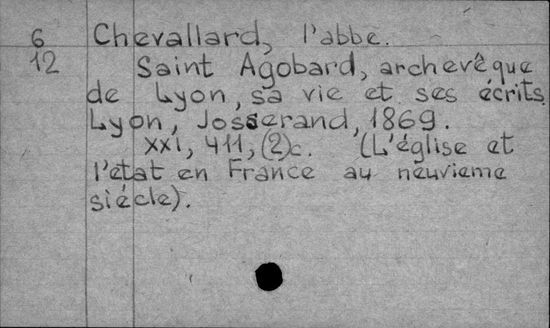 6 Chevallard, l'abbe.
12 Saint Agobard, archevêque
de Lyon, sa vie et ses écrits.
Lyon, Josserand, 1869.
XXI, 411, (2)c. (L'église et
l'état en France au neuvieme
siécle).